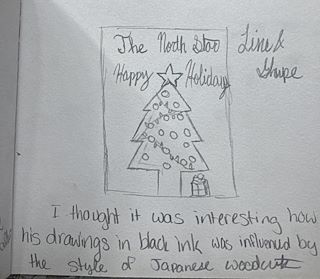 The North Star
Line &
Shape
Happy Holidays
I thought it was interesting how
his drawings in black ink was influenced by
the style of Japanese woodcuts